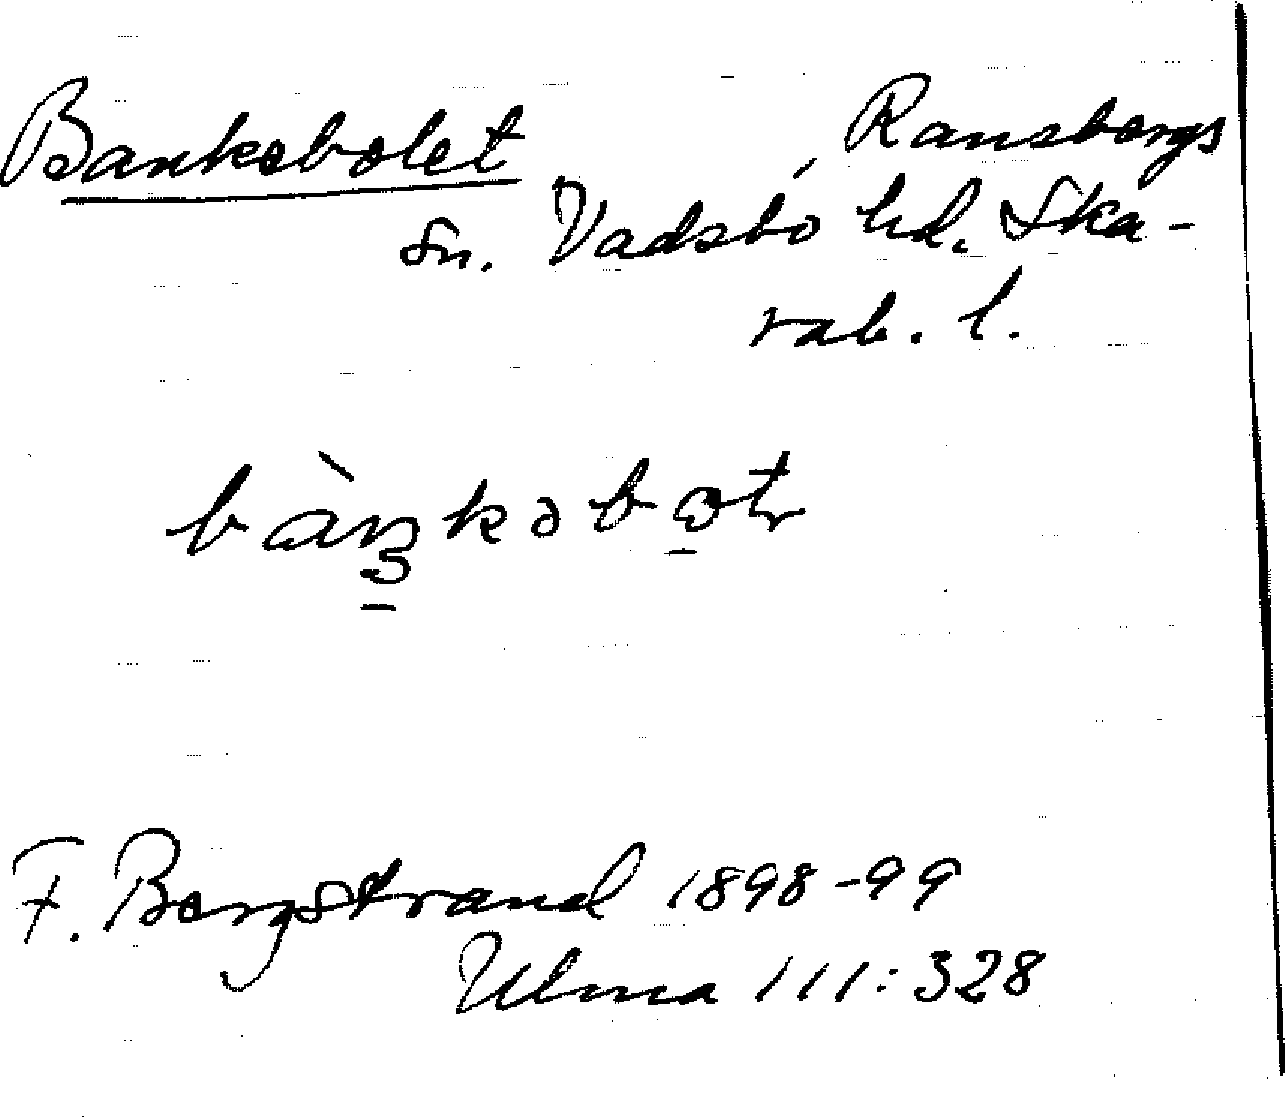 Bankebolet Ransbergs
sn. Vadsbo hd. Ska-
rab. l.
F. Bergstrand 1898-99
Ulma 111:328